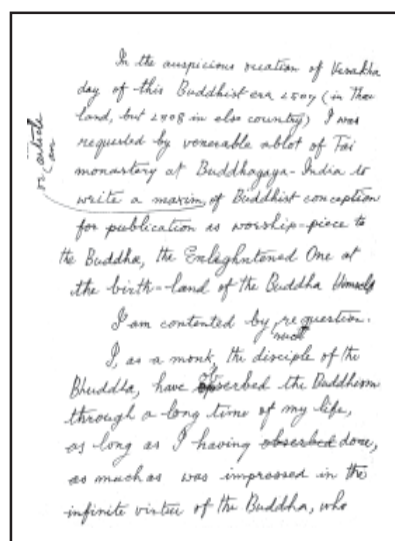 In the auspicious ocation of Vesakha
day of this Buddhist era 2507 (in Thai
land, but 2508 in else country) I was
requested by venerable abbot of Tai
monastery at Buddhagaya-India to
write a maxim, of Buddhist conception
or an article
for publication as worship-piece to
the Buddha, the Enlightened One at
the birth-land of the Buddha Himself
I am contented by such request.
I, as a monk, the disciple of the
Bhuddha, have observed the Buddhism
through a long time of my life,
as long as I having done,
as much as was impressed in the
infinite virtue of the Buddha, who